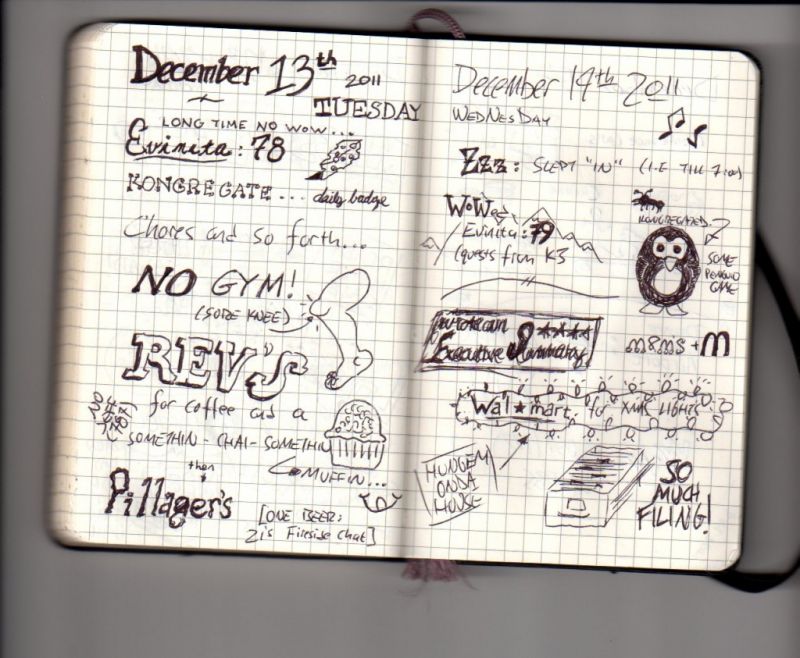 December 13th 2011
TUESDAY
LONG TIME NO WOW...
Evinita: 78
KONGREGATE... daily badge
Chores and so forth...
NO GYM!
(SORE KNEE)
REV'S
for coffee and a
SOMETHIN-CHAI-SOMETHIN
MUFFIN...
then
Pillager's
[ONE BEER:
21's Fireside Chat]
December 14th 2011
WEDNESDAY
Zzz: SLEPT "IN" (I.E TILL 7:00)
WoWed
Evinita: 79
(quests from K3
KONGREGATED
SOME
PENGUINO
GAME
Executive Summary
m&m's + m
Wal★mart for XMAS LIGHTS
HUNGEM
ONDA
HOUSE
SO
MUCH
FILING!